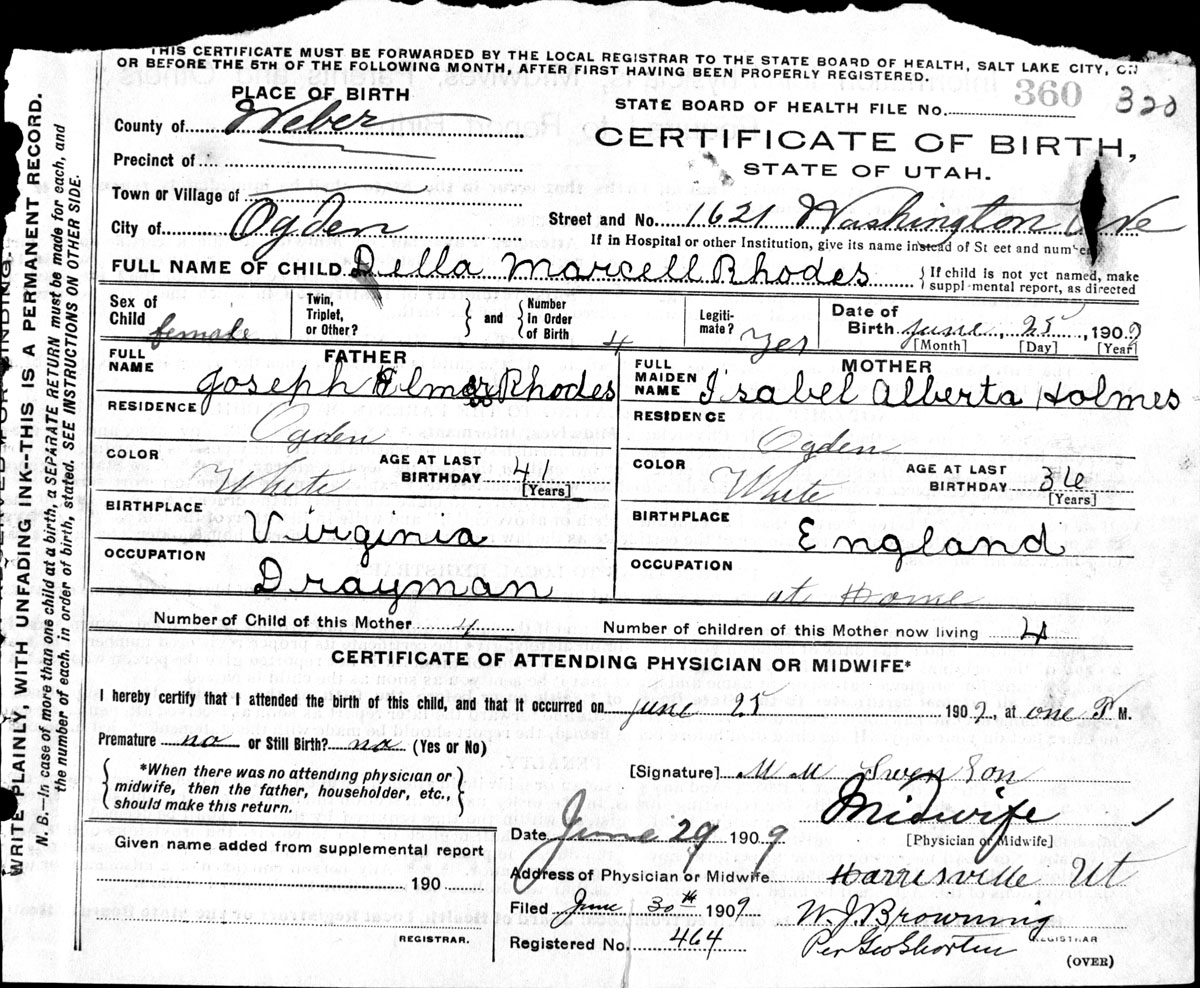 THIS CERTIFICATE MUST BE FORWARDED BY THE LOCAL REGISTRAR TO THE STATE BOARD OF HEALTH, SALT LAKE CITY, ON
OR BEFORE THE 5TH OF THE FOLLOWING MONTH, AFTER FIRST HAVING BEEN PROPERLY REGISTERED.
360 320
PLACE OF BIRTH
STATE BOARD OF HEALTH FILE No.
County of Weber
CERTIFICATE OF BIRTH,
STATE OF UTAH.
Precinct of
Town or Village of
City of Ogden
Street and No. 1621 Washington Ave
If in Hospital or other Institution, give its name instead of St eet and num
FULL NAME OF CHILD Della Marcell Rhodes
{ If child is not yet named, make suppl-mental report, as directed
Sex of Child female
Twin, Triplet, or Other? { and { Number in Order of Birth 4
Legiti-mate? Yes
Date of Birth June 25, 1909
[Month] [Day] [Year]
FATHER
FULL NAME Joseph Elmer Rhodes
MOTHER
FULL MAIDEN NAME Isabel Alberta Holmes
RESIDENCE Ogden
RESIDENCE Ogden
COLOR White AGE AT LAST BIRTHDAY 41 [Years]
COLOR White AGE AT LAST BIRTHDAY 36 [Years]
BIRTHPLACE Virginia
BIRTHPLACE England
OCCUPATION Drayman
OCCUPATION at Home
Number of Child of this Mother 4
Number of children of this Mother now living 4
CERTIFICATE OF ATTENDING PHYSICIAN OR MIDWIFE*
I hereby certify that I attended the birth of this child, and that it occurred on June 25, 1909, at one P M.
Premature no or Still Birth? no (Yes or No)
{ *When there was no attending physician or midwife, then the father, householder, etc., should make this return. }
[Signature] M M Swenson
Midwife
[Physician or Midwife]
Date June 29 1909
Given name added from supplemental report
190
REGISTRAR.
Address of Physician or Midwife Harrisville Ut
Filed June 30th 1909 W. J. Browning
REGISTRAR
Registered No. 464 Per Geo Shorten
(OVER)
WRITE PLAINLY, WITH UNFADING INK--THIS IS A PERMANENT RECORD.
B.--In case of more than one child at a birth, a SEPARATE RETURN must be made for each, and
the number of each, in order of birth, stated. SEE INSTRUCTIONS ON OTHER SIDE.